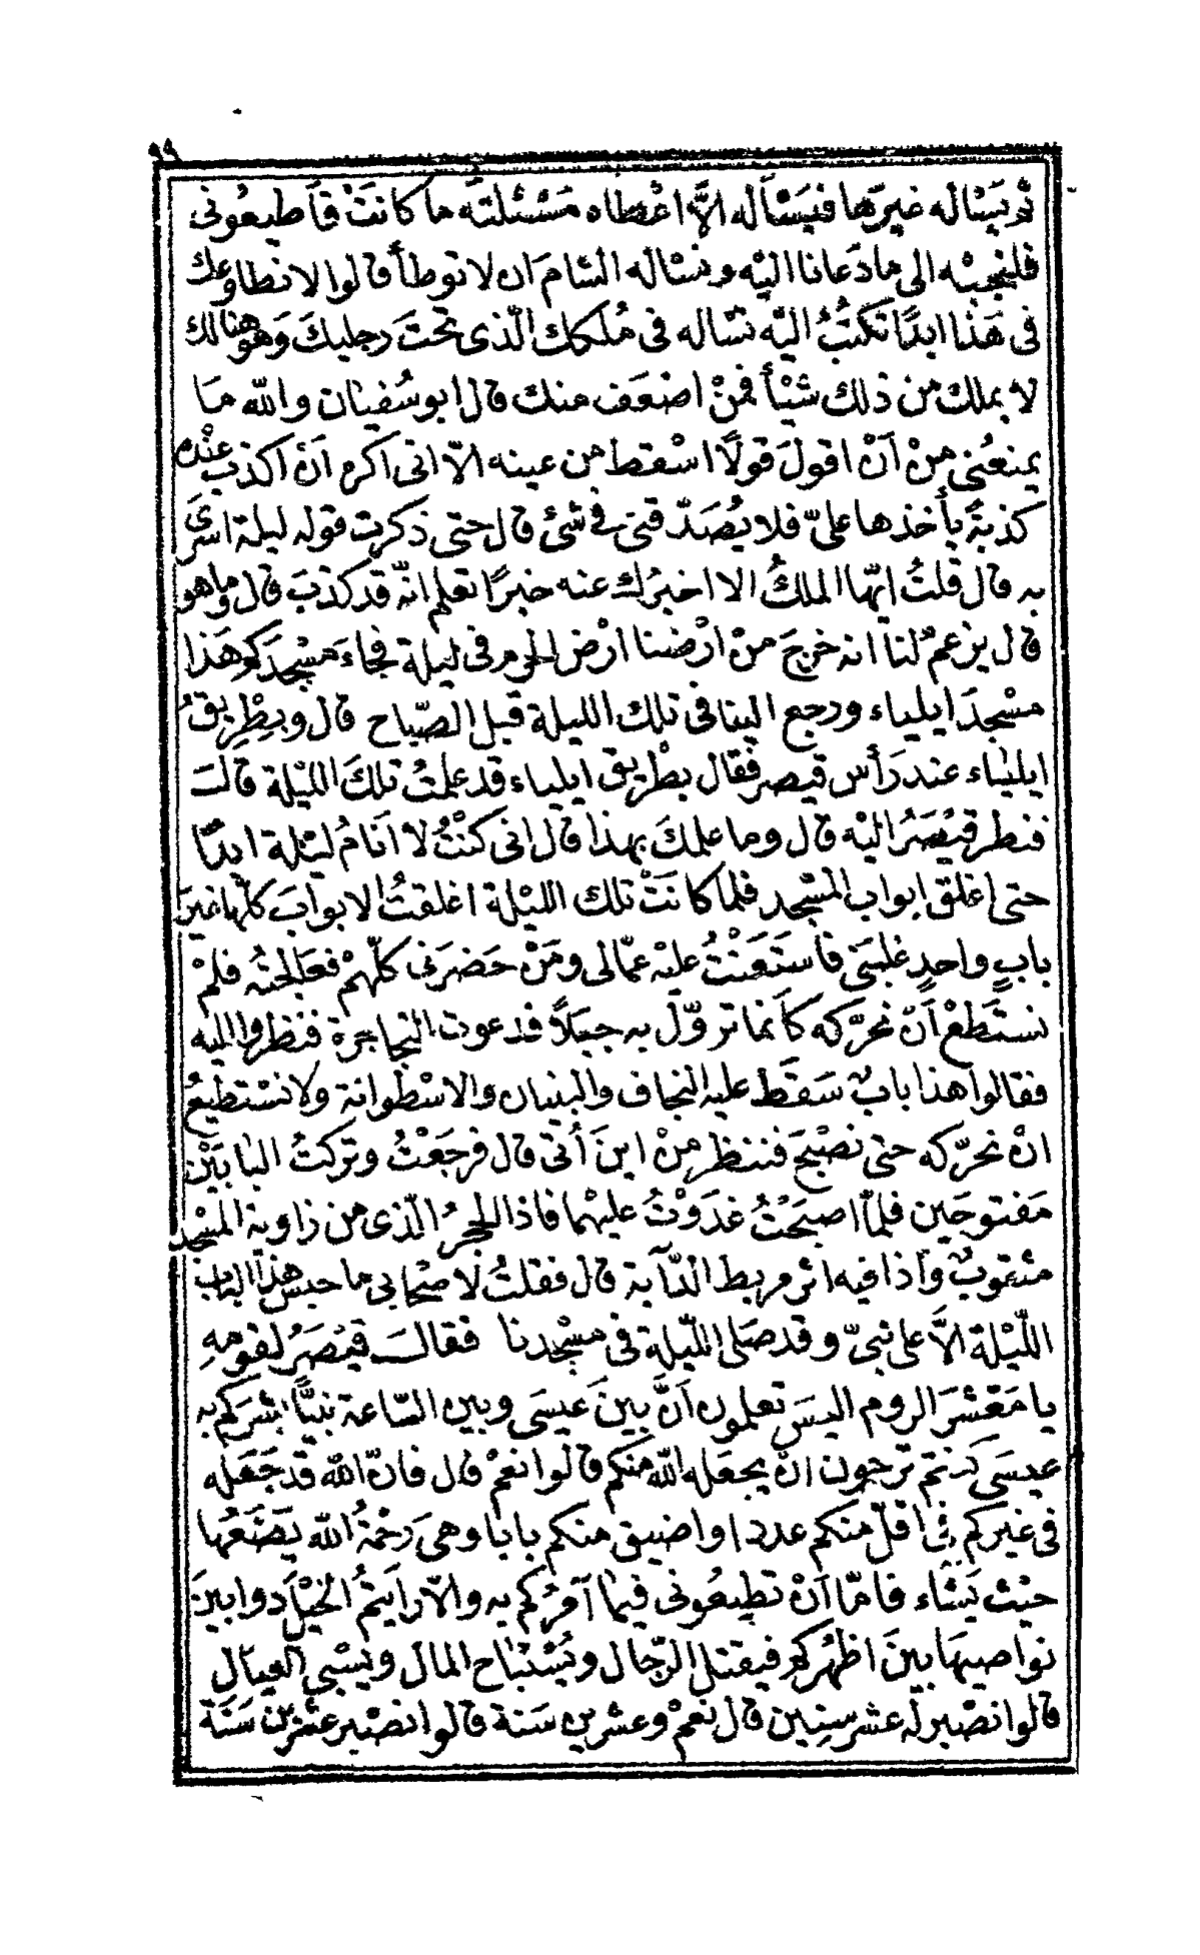 ٩٩
ثم يَسْاله غيرَها فيَسْأله الَّا اعْطاه مَسْئلته ما كانَتْ فأطيعُونى
فلنجبْه الى ما دَعانا اليْه ونسْاله الشامَ ان لا توطأ قالوا لا نطاوعك
فى هَذا ابدًا نكتُبُ اليْه نسْاله فى مُلكك الّذى تحتَ رجليكَ وَهو هنالك
لا يملك من ذلك شيْأ فمنْ اضعَف منك قال ابو سُفيان والله مَا
يمنعُنى منْ اَنْ اقولَ قولًا اسْقط من عينه الّا انى اكره اَنْ اكذب عنْده
كذبةً يأخذها علىّ فلا يُصَدّقنى فى شئ قال حتى ذكرت قوله ليلة اسْرىَ
به قال قلتُ ايّها الملكُ الا اخبرُك عنه خبرًا تعلم انّه قد كذبَ قال وما هو
قال يزعمُ لنا انه خرجَ منْ ارْضنا ارْض الحرم فى ليلة فجاءَ مسْجدكم هَذا
مسْجدَ ايلياء ورجع الينا فى تلك الليلة قبل الصّباح قال وبِطْرِيقُ
ايلياء عند رَأس قيصر فقال بطْريق ايلياء قد علمتُ تلكَ الليْلة قالَ
فنظر قيْصَرُ اليْه قال وما علمكَ بهذا قال انى كنْتُ لا اَنامُ ليْلة ابدًا
حتى اغلق ابواب المسْجد فلما كانَتْ تلك الليْلة اغلقتُ الابوابَ كلّها غيرَ
بابٍ واحدٍ غلبَنى فاستَعَنْتُ عليْه عمّالى ومَنْ حَضرَنى كلّهمْ فعَالجتُه فلمْ
نستَطعْ اَنْ نحرّكه كأنما نروّل به جبَلًا فدعوت النجاجرة فنظروا اليه
فقالوا هذا بابٌ سَقَط عليه النجاف والبنيان والاسْطوانة ولا نسْتطيعُ
انْ نحرّكه حتى نصْبحَ فننظر منْ اينَ أتىَ قال فرجَعْتُ وتركتُ البابَيْن
مَفتوحَين فلمّا اصبَحْتُ غدَوْتُ عليْهما فاذا الحجرُ الّذى من زاوية المسْجد
مثقوبٌ وَاذا فيه اثر مربط الدّآبة قال فقلتُ لاَصْحابى ما حبس هذا الباب
اللّيْلة الاَّ على نبىّ وقد صَلى الليْلة فى مسْجدنا فقالَ قيْصَرُ لقومهِ
يا مَعْشرَ الروم اليسَ تعلمون اَنَّ بينَ عيسَى وبين السّاعة نبيًّا بشركم به
عيسَى كنتم ترجون انْ يجعله الله منكم قالوا نعَمْ قال فانّ الله قدْ جَعَله
فى غيركم فى اقلّ منكم عددا واضيق منكم بابا وهىَ رَحْمةُ الله يَضَعُها
حيْث يَشاء فامّا اَنْ تطيعُونى فيما آمرُكم به والّا رايتُمُ الخيْلَ دوابينَ
نواصيهَا بينَ اظهركم فيقتل الرّجال ويُسْتباح المال ويسْبى العيالِ
قالوا نصْبر له عشر سنين قال نعَمْ وعشرين سَنة قالوا نصْبر عشْرين سَنة